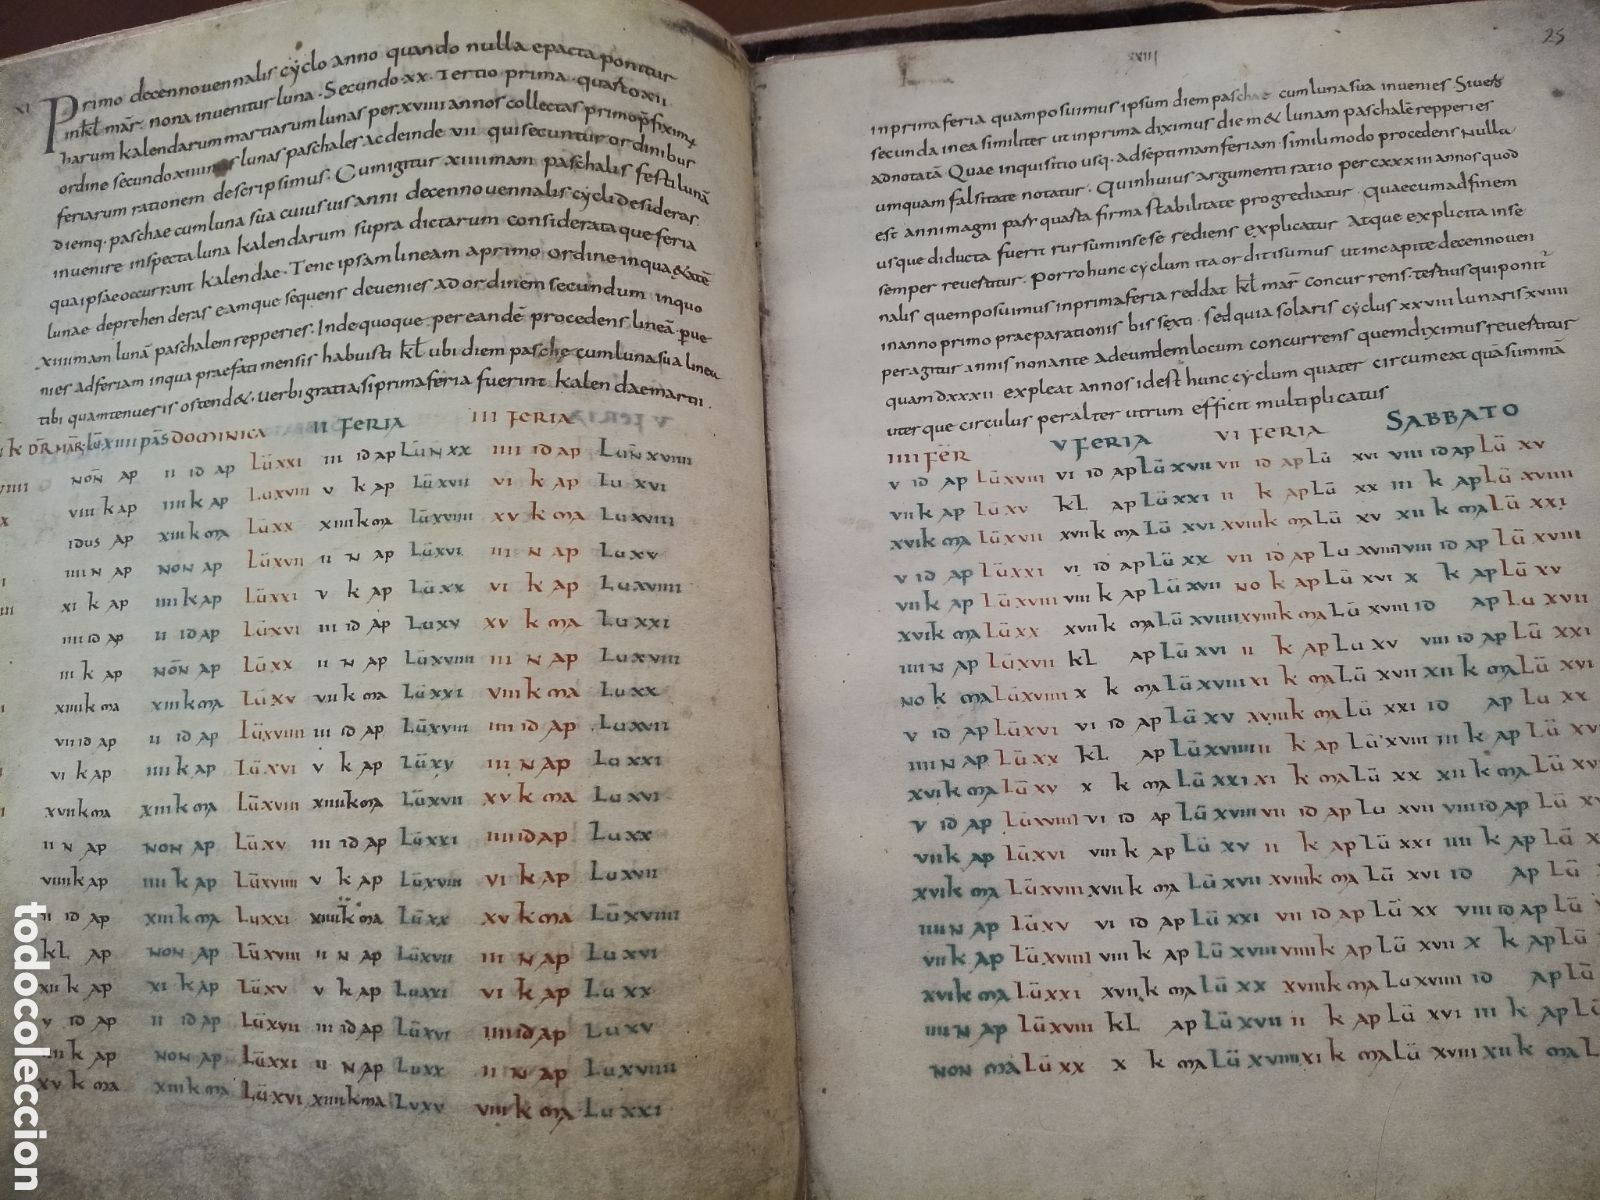 XI
Primo decennovennalis cyclo anno quando nulla epacta ponitur
inkl mar. nona invenitur luna. Secundo xx. Tertio prima. quarto xii.
harum kalendarum martiarum lunas per xviiii annos collectas primo
ordine secundo xiiii lunas paschales ac deinde vii qui secuntur ordinibus
feriarum rationem descripsimus. Cum igitur xiiiimam paschalis festi lunā
diemq. paschae cum luna sua cuius vis anni decennovennalis cycli desideras
invenire inspecta luna kalendarum supra dictarum considerataque feria
qua ipsae occurrant kalendae. Tenc ipsam lineam a primo ordine in qua
lunae deprehenderas eamque sequens devenies ad ordinem secundum in quo
xiiiimam lunā paschalem repperies. Inde quoque per eandē procedens lineā
nies ad feriam in qua praefati mensis habuisti kł ubi diem pasche cum luna sua linea
tibi quam tenueris ostend&. verbi gratia, si prima feria fuerint kalendae martii.
DOMINICA II FERIA III FERIA
NOÑ AP II ID AP LŪ XXI III ID AP LŪN XX IIII ID AP LŪN XVIIII
VIII K AP IIII K AP LŪ XVIII V K AP LŪ XVII VI K AP LU XVI
IDUS AP XIII K MA LŪ XX XIIII K MA LŪ XVIIII XV K MA LU XVIII
IIII N AP NON AP LŪ XVII II N AP LŪ XVI III N AP LU XV
XI K AP IIII K AP LŪ XXI V K AP LŪ XX VI K AP LU XVIIII
IIII ID AP II ID AP LŪ XVI III ID AP LU XV XV K MA LU XXI
III K AP NOÑ AP LŪ XX II N AP LŪ XVIIII III N AP LU XVIII
XIIII K MA XIII K MA LŪ XV VII K MA LŪ XXI VIII K MA LU XX
VII ID AP II ID AP LŪ XVIIII III ID AP LŪ XVIII IIII ID AP LU XVII
VI K AP IIII K AP LŪ XVI V K AP LŪ XV III N AP LU XXI
XVII K MA XIII K MA LŪ XVIII XIIII K MA LŪ XVII XV K MA LU XVI
II N AP NON AP LŪ XV III ID AP LŪ XXI IIII ID AP LU XX
VIIII K AP IIII K AP LŪ XVIIII V K AP LŪ XVIII VI K AP LU XVII
II ID AP XIII K MA LU XXI XIIII K MA LŪ XX XV K MA LŪ XVIIII
KL AP NON AP LŪ XVIII II N AP LŪ XVII III N AP LU XVI
XII K AP XI K AP LŪ XV V K AP LU XXI VI K AP LU XX
V ID AP II ID AP LŪ XVII III ID AP LŪ XVI IIII ID AP LU XV
IIII K AP NON AP LŪ XXI II N AP LU XX III N AP LU XVIIII
XV K MA XIII K MA LŪ XVI XIIII K MA LU XV VIII K MA LU XXI
XXIII
25
in prima feria quam posuimus ipsum diem paschae cum luna sua invenies Si vero
secunda in ea similiter ut in prima diximus diem & lunam paschalē repperies
adnotatā. Quae inquisitio usq. ad septimam feriam. simili modo procedens nulla
umquam falsitate notatur. Quin huius argumenti ratio per cxxxiii annos quod
est anni magni pars quarta firma stabilitate progrediatur. quaecum ad finem
usque diducta fuerit rursum in se se rediens explicatur Atque explicita in se
semper revertitur. Porro hunc cyclum ita orditi sumus ut in capite decennoven
nalis quem posuimus in prima feria reddat kł mar concurrens. tertius qui ponitr
in anno primo praeparationis bissexti. sed quia solaris cyclus xxviii lunaris xviiii
peragitur annis non ante ad eundem locum concurrens quem diximus revertitur
quam dxxxii expleat annos id est hunc cyclum quater circumeat quā summā
uterque circulus per alterutrum efficit multiplicatus
IIII FER V FERIA VI FERIA SABBATO
V ID AP LŪ XVIII VI ID AP LŪ XVII VII ID AP LŪ XVI VIII ID AP LŪ XV
VII K AP LŪ XV KL AP LŪ XXI II K AP LŪ XX III K AP LŪ XVIIII
XVI K MA LŪ XVII XVII K MA LŪ XVI XVIII K MA LŪ XV XII K MA LŪ XXI
V ID AP LŪ XXI VI ID AP LŪ XX VII ID AP LU XVIIII VIII ID AP LŪ XVIII
VII K AP LŪ XVIII VIII K AP LŪ XVII NO K AP LŪ XVI X K AP LŪ XV
XVI K MA LŪ XX XVII K MA LŪ XVIIII XVIII K MA LŪ XVIII ID AP LU XVII
IIII N AP LŪ XVII KL AP LŪ XVI II K AP LU XV VIII ID AP LŪ XXI
NO K MA LŪ XVIIII X K MA LŪ XVIII XI K MA LŪ XVII XII K MA LŪ XVI
V ID AP LŪ XVI VI ID AP LŪ XV XVIII K MA LŪ XXI ID AP LU XX
IIII N AP LŪ XX KL AP LŪ XVIIII II K AP LŪ XVIII III K AP
XVI K MA LŪ XV X K MA LŪ XXI XI K MA LŪ XX XII K MA
V ID AP LŪ XVIIII VI ID AP LŪ XVIII VII ID AP LU XVII VIII ID AP LŪ
VII K AP LŪ XVI VIII K AP LŪ XV II K AP LŪ XXI IIII K AP LŪ
XVI K MA LŪ XVIII XVII K MA LŪ XVII XVIII K MA LŪ XVI ID AP LŪ
IIII N AP LŪ XV VI ID AP LŪ XXI VII ID AP LŪ XX VIII ID AP
VII K AP LŪ XVIIII VIII K AP LŪ XVIII VIIII K AP LŪ XVII X K AP
XVI K MA LŪ XXI XVII K MA LŪ XX XVIII K MA LU XVIIII ID AP LŪ
IIII N AP LŪ XVIII KL AP LŪ XVII II K AP LŪ XVI III K AP
NON MA LŪ XX X K MA LŪ XVIIII XI K MA LŪ XVIII XII K MA
todocoleccion